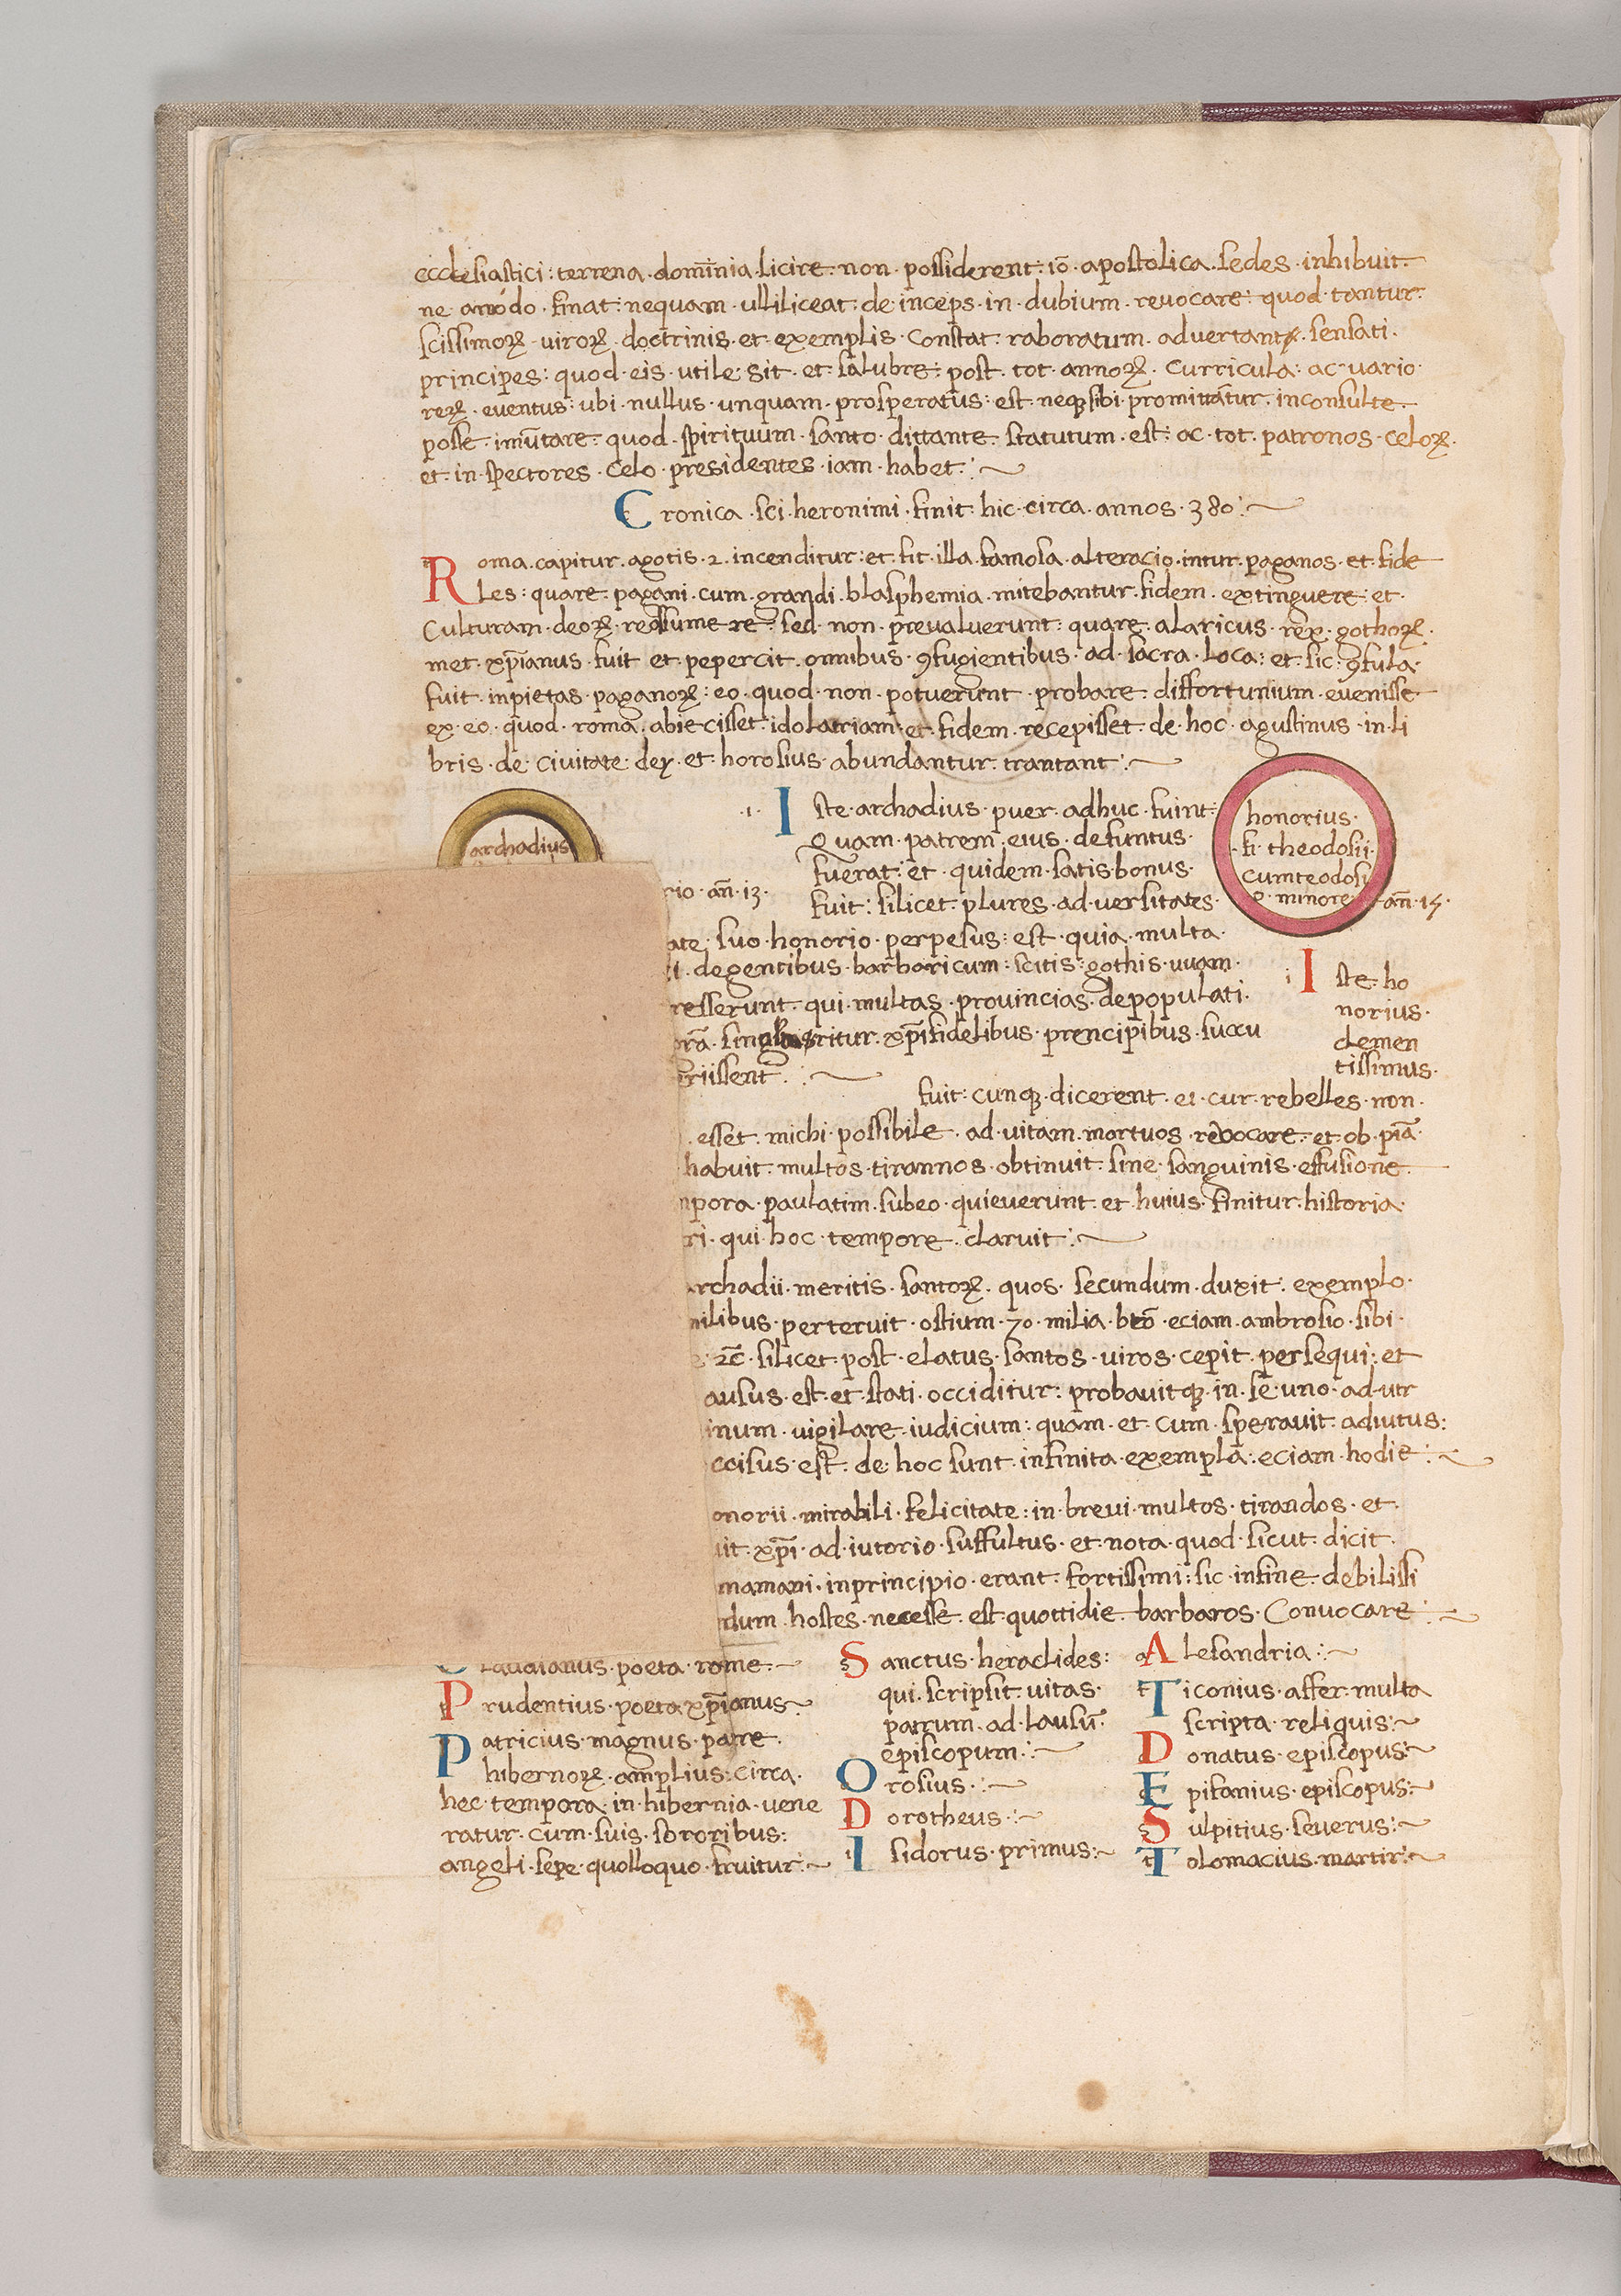 ecclesiastici: terrena dominia licire non possiderent: iō apostolica sedes inhibuit
ne amōdo finat: nequam ulliliceat de inceps in dubium revocare quod tantur
scissimoꝝ uiroꝝ doctrinis et exemplis constat raboratum advertant sensati
principes: quod eis utile sit et salubre: post tot annoꝝ curricula: ac vario
reꝝ eventus: ubi nullus unquam prosperatus: est neqꝫ sibi promittantur inconsulte
posse imūtare quod spirituum santo dittante statutum est: ac tot patronos celoꝝ
et in spectores celo presidentes iam habet:~
Cronica sci heronimi finit hic circa annos 380:~
Roma capitur agotis 2 incenditur: et fit illa famosa alteracio intur paganos et fide
les: quare pagani cum grandi blasphemia mitebantur fidem extinguere et
culturam deoꝝ reassumere sed non prevaluerunt: quare alaricus rex gothoꝝ
met xp̄ianus fuit et pepercit omnibus ꝯfugientibus ad sacra loca: et sic ꝯfula
fuit inpietas paganoꝝ: eo quod non potuerunt probare diffortunium evenisse
ex eo quod roma abiecisset idolatriam et fidem recepisset de hoc agustinus in li
bris de civitate dey et horosius abundantur trantant:~
archadius
rio an̄ 13
1 Iste archadius puer adhuc fuint:
Quam patrem eius defuntus
fuerat: et quidem satis bonus
fuit: silicet plures ad versitates
honorius
fi theodosii
cum teodosi
o minore an̄ 15
ate suo honorio perpesus: est quia multa
degentibus barbaricum: scitis: gothis uuam
resserunt qui multas provincias depopulati
ritur xp̄i fidelibus prencipibus succu
riissent:~
i Iste ho
norius
clemen
tissimus
fuit: cunqꝫ dicerent ei cur rebelles non
esset michi possibile ad vitam mortuos revocare et ob piā
habuit multos tirannos obtinuit sine sanguinis effusione
mpora paulatim subeo quieverunt et huius finitur historia
ri qui hoc tempore claruit:~
rchadii meritis santoꝝ quos secundum duxit: exemplo
milibus perteruit ostium 70 milia eciam ambrosio sibi
silicet post elatus santos viros cepit persequi: et
ausus est et stati occiditur: probavitqꝫ in se uno ad utr
inum vigilare iudicium: quam et cum speravit adiutus:
ccisus est de hoc sunt infinita exempla: eciam hodie:~
onorii mirabili felicitate: in brevi multos tirandos et
it xp̄i ad iutorio suffultus et nota quod sicut dicit
mamani in principio erant fortissimi: sic in fine debilissi
dum hostes necesse est quottidie barbaros convocare:~
Claudianus poeta rome~
Prudentius poeta xp̄ianus~
Patricius magnus patre
hibernoꝝ amplius circa
hec tempora in hibernia vene
ratur cum suis sororibus:
angeli sepe quolloquo fruitur:~
Sanctus heraclides:
qui scripsit vitas
patrum ad lausū
episcopum:~
Orosius:~
Dorotheus:~
Isidorus primus:~
Alesandria:~
Ticonius affer multa
scripta reliquis:~
Donatus episcopus:~
Epifanius episcopus:~
Sulpitius severus:~
Tolomacius martir:~